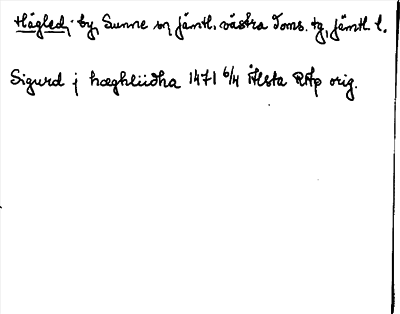 Hägled, by, Sunne sn jämtl. västra doms. tg, jämtl. l.
Sigurd j hæghliidha 1471 6/4 Ålsta RAp orig.